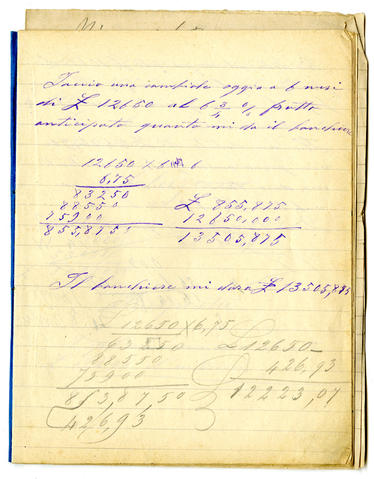 Faccio una cambiale oggi a 6 mesi
di £ 12650 al 6 3/4 % frutto
anticipato quanto mi da il banchiere
12650 x 6
6,75
63250
88550
75900
855,8750
£ 855,875
12650,000
13505,875
Il banchiere mi darà £ 13505,875
£ 12650 x 6,75
63250
88550
75900
853,87,50
426,93
£ 12650
426,93
12223,07